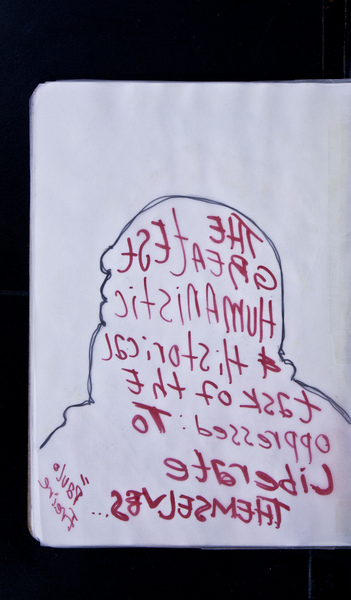 THE
GREATEST
HUMANistic
& Historical
task of the
oppressed: To
Liberate
THEMSELVES...
"Paulo
Freire